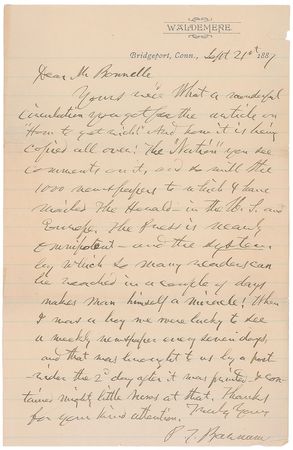 WALDEMERE.
Bridgeport, Conn., Sept 21st 1887
Dear Mr Bonnelle
Yours rec'd. What a wonderful
circulation you got for the article on
How to get rich! And how it is being
copied all over! The "Nation" you see
comments on it, and so will the
1000 newspapers to which I have
mailed The Herald - in the U.S. and
Europe. The Press is nearly
omnipotent - and the system
by which so many readers can
be reached in a couple of days
makes man himself a miracle! When
I was a boy we were lucky to see
a weekly newspaper every seven days,
and that was brought to us by a post
rider the 2d day after it was printed & con-
tained might little news at that. Thanks
for your kind attention. Truly Yours
P. T. Barnum